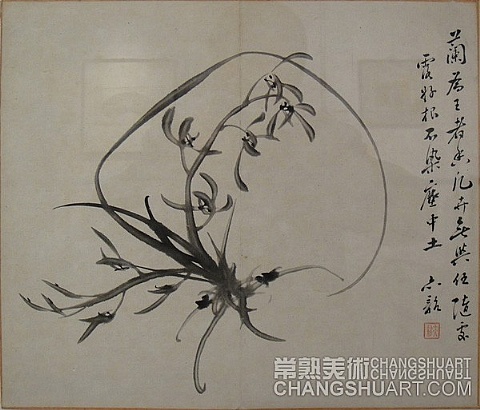 蘭為王者香凡卉無與伍隨處
露好根不染塵中土
常熟美術 CHANGSHUART
CHANGSHUART.COM